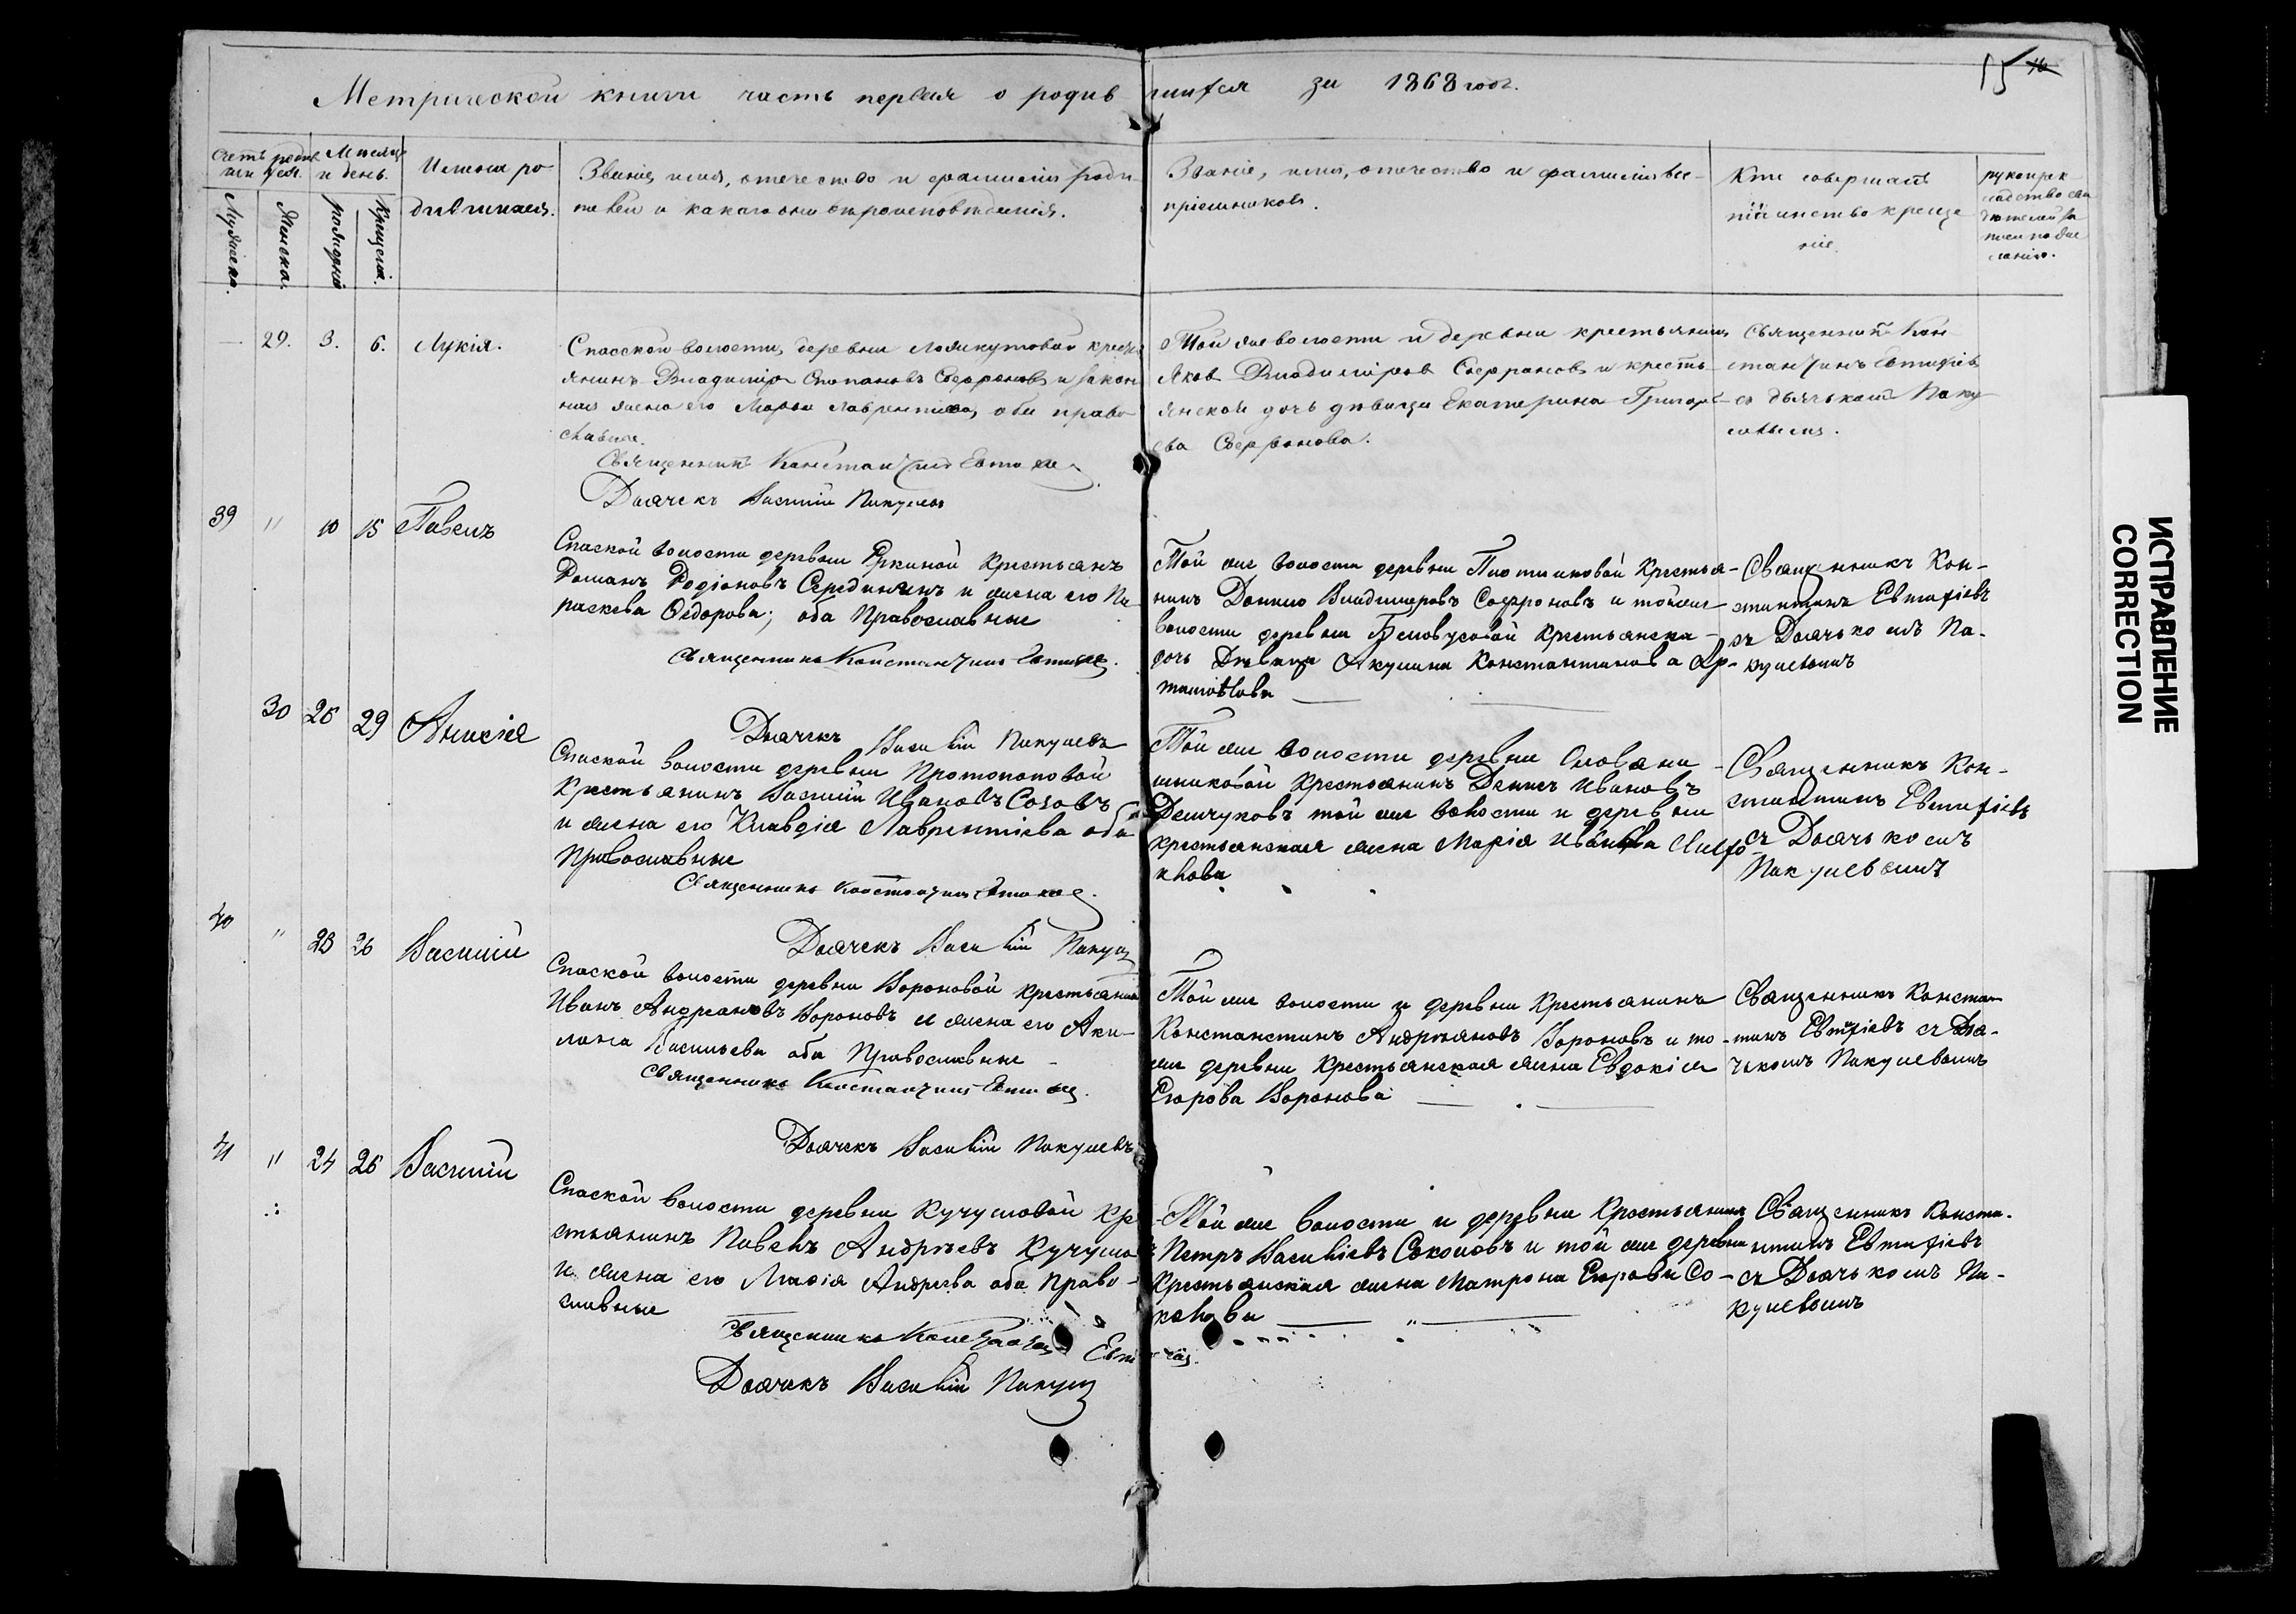 15 16
Метрической книги часть первая о родившихся за 1868 годъ.
Счетъ родив
шихся.
Месяцъ
и день.
Имена ро
дившихся.
Званіе, имя, отечество и фамилія роди
телей и какого они вѣроисповѣданія.
Званіе, имя, отечество и фамилія вос
пріемниковъ.
Кто совершалъ
таинство креще
нія.
рукопри
кладство сви
дѣтелей за
писи по же
ланію.
Мужеска.
Женска.
рожденія
Крещенія.
29. 3. 6. Лукія.
Спасской волости, деревни крестья
янинъ Владиміръ Степановъ Софроновъ и закон
ная жена его Марья Лаврентьева, оба право
славные.
Священникъ Константинъ Евтифіевъ
Дьячекъ Василій Пакулевъ
Той же волости и деревни крестьянинъ
Яковъ Владиміровъ Софроновъ и кресть
янской дочь дѣвица Екатерина Григорь
ева Софронова.
Священникъ Кон
стантинъ Евтифіевъ
съ дьячкомъ Паку
левымъ.
39 " 10 15 Павелъ
Спаской волости деревни Еркиной Крестьянъ
Романъ Родіоновъ Серединъ и жена его Па
раскева Ѳедорова; оба Православные
Священникъ Константинъ Евтифіевъ.
Той же волости деревни Плотниковой Крестья-
нинъ Данило Владимеровъ Софроновъ и той же
волости деревни Крестьянска-
дочь Дѣвица Акулина Константинова Ар-
тамонова
Священникъ Кон-
стантинъ Евтифіевъ
съ Дьячькомъ Па-
кулевымъ
30 26 29 Анисія
Дьячекъ Василій Пакулевъ
Спаской волости деревни Протопоповой
Крестьянинъ Василій Ивановъ Созовъ
и жена его Клавдія Лаврентіева оба
Православные
Священникъ Константинъ Евтифіевъ.
Той же волости деревни
Крестьянинъ Денисъ Ивановъ
Демчуковъ той же волости и деревни
крестьянская жена Марія Иванова
Священникъ Кон-
стантинъ Евтифіевъ
съ Дьячькомъ
Пакулевымъ
40 " 23 26 Василій
Дьячекъ Василій Пакулевъ
Спаской волости деревни Вороновой Крестьянинъ
Иванъ Андреановъ Вороновъ и жена его Аки-
лина Васильева оба Православные
Священникъ Константинъ Евтифіевъ.
Той же волости и деревни Крестьянинъ
Констанстинъ Андрияновъ Вороновъ и то-
же деревни Крестьянская жена Евдокія
Егорова Воронова
Священникъ Констан
тинъ Евтифіевъ съ Дья-
чкомъ Пакулевымъ
41 " 24 26 Василій
Дьячекъ Василій Пакулевъ
Спаской волости деревни Кучумовой Кре
стьянинъ Павелъ Андреевъ Кучумовъ
и жена его Марія Андреева оба Право-
славные
Священникъ Константинъ Евтифіевъ.
Дьячекъ Василій Пакулевъ
Той же волости и деревни Крестьянинъ
Петръ Василіевъ Соколовъ и той же деревни
Крестьянская жена Матрона Егорова Со-
колова
Священникъ Конста-
нтинъ Евтифіевъ
съ Дьячькомъ Па-
кулевымъ
ИСПРАВЛЕНИЕ
CORRECTION